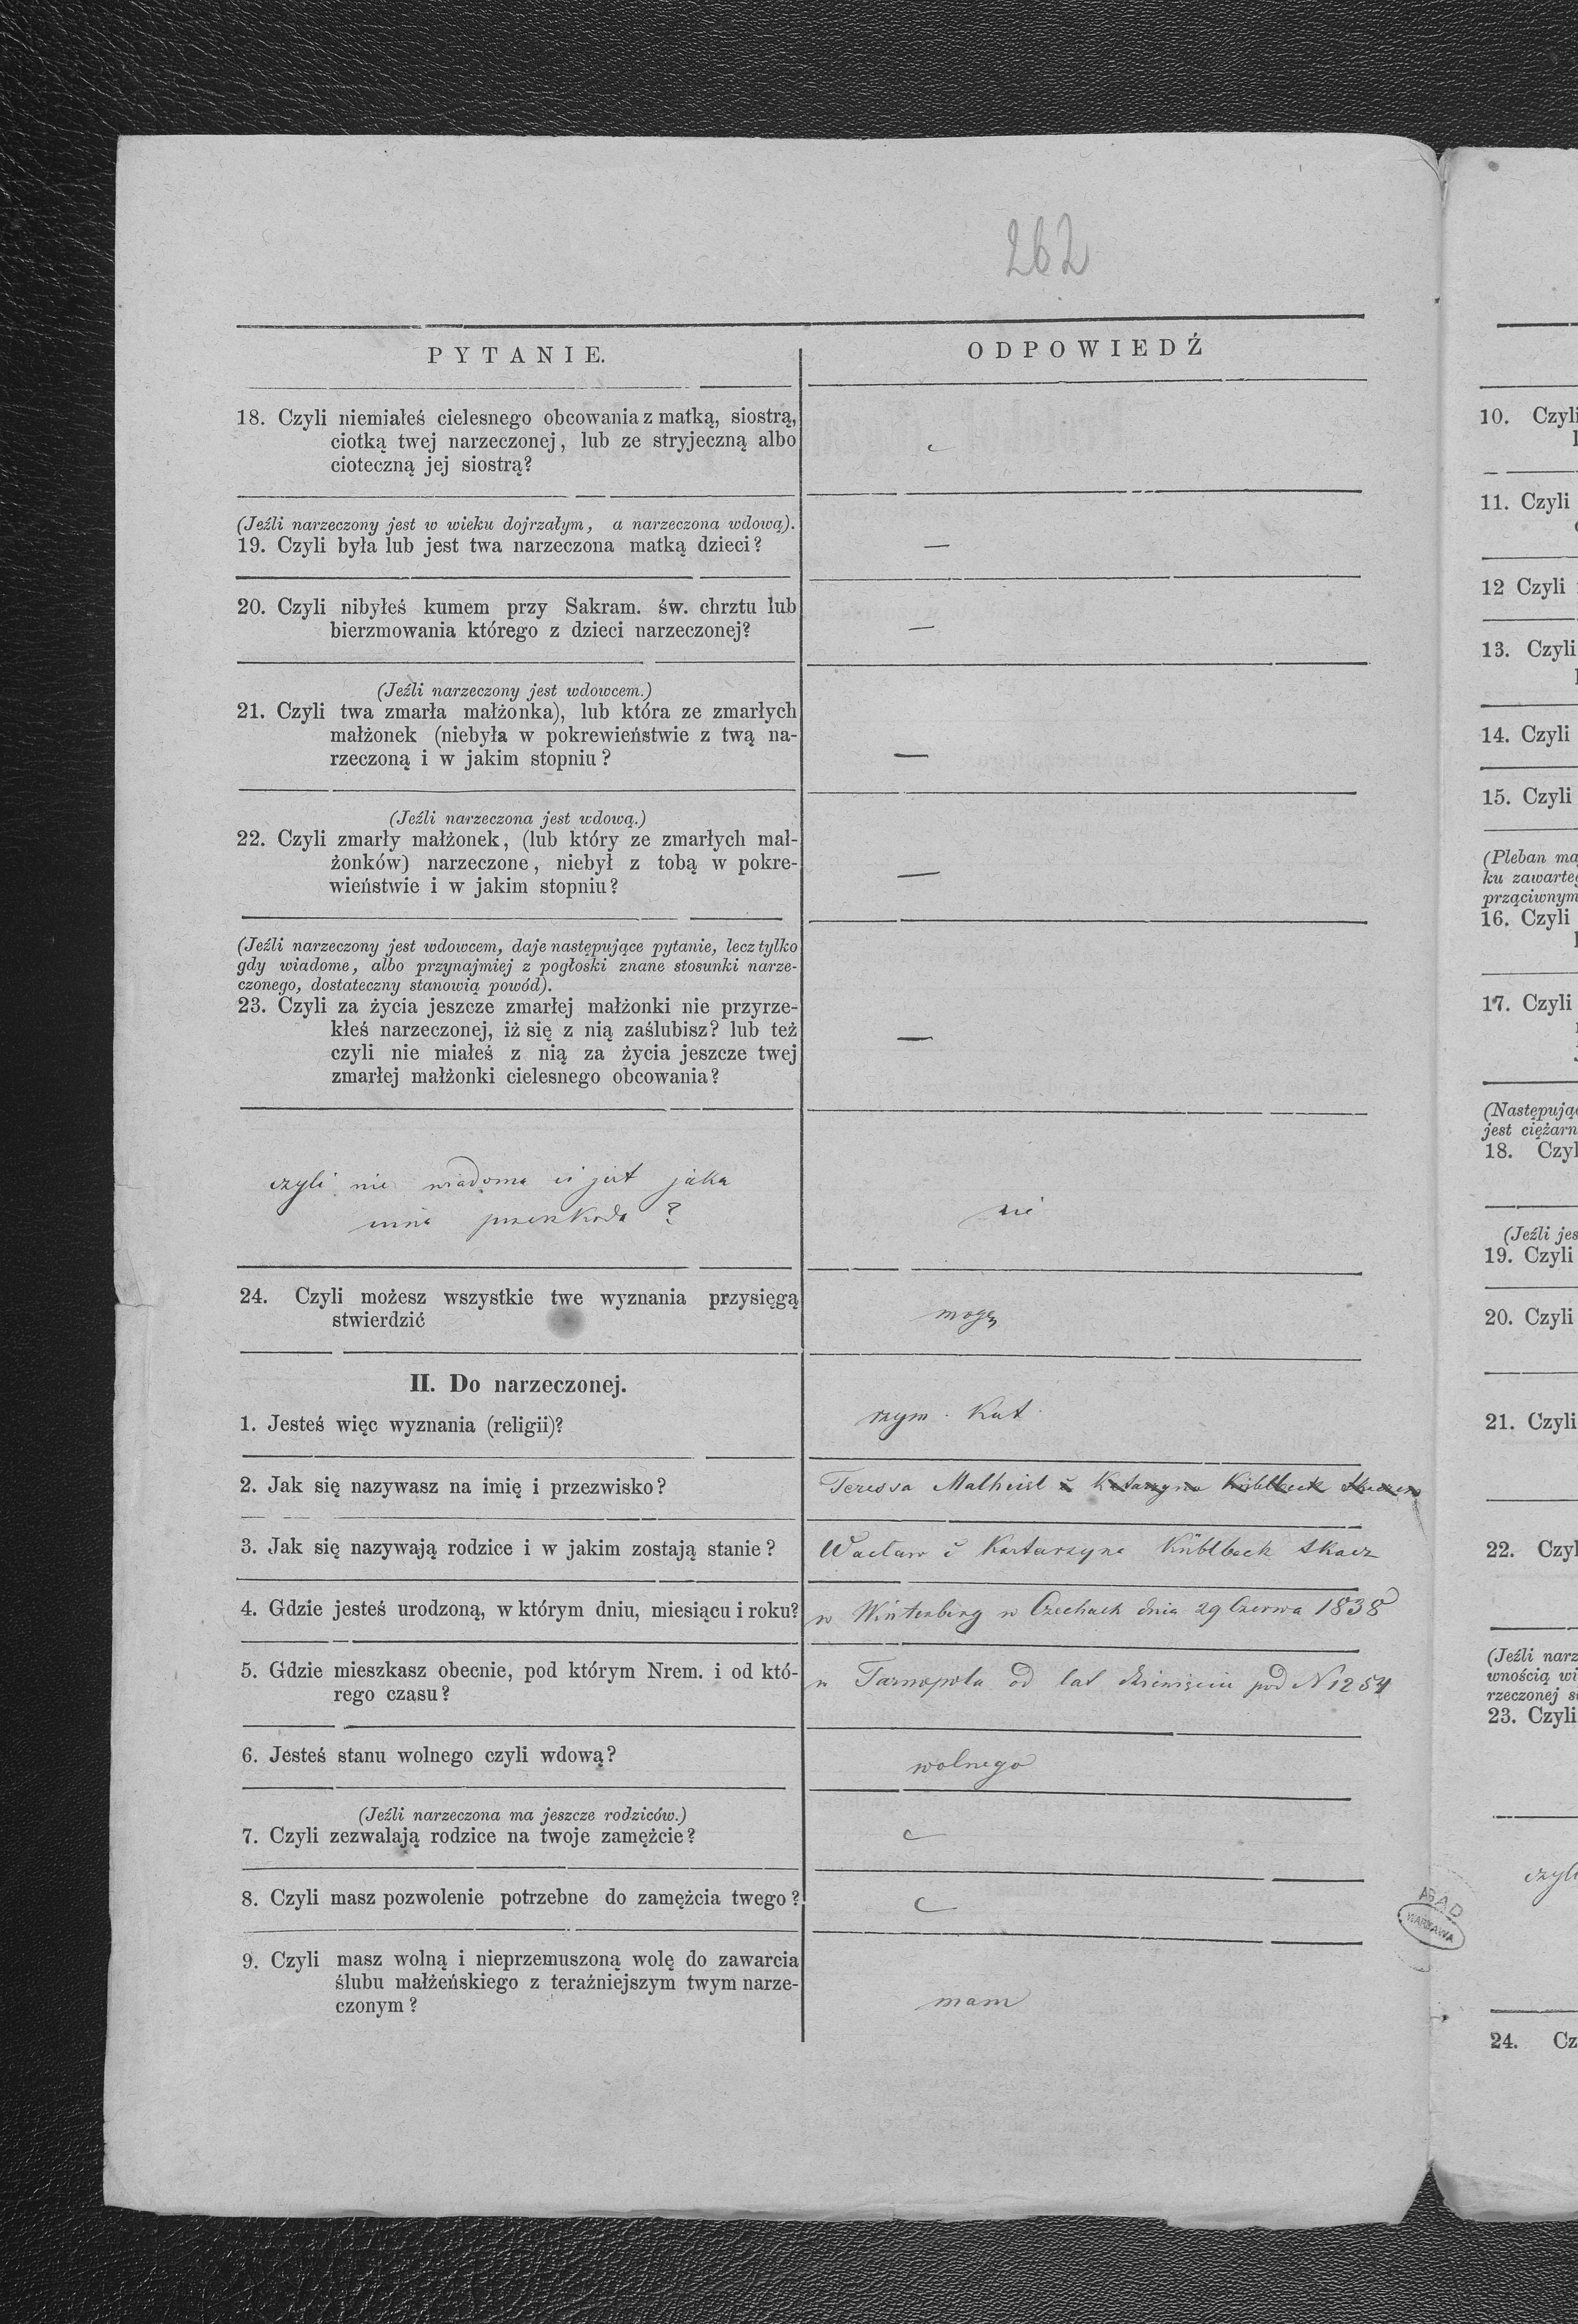 262
PYTANIE.
ODPOWIEDŹ
18. Czyli niemiałeś cielesnego obcowania z matką, siostrą,
ciotką twej narzeczonej, lub ze stryjeczną albo
cioteczną jej siostrą?
(Jeźli narzeczony jest w wieku dojrzałym, a narzeczona wdową).
19. Czyli była lub jest twa narzeczona matką dzieci?
—
20. Czyli nibyłeś kumem przy Sakram. św. chrztu lub
bierzmowania którego z dzieci narzeczonej?
—
(Jeźli narzeczony jest wdowcem.)
21. Czyli twa zmarła małżonka), lub która ze zmarłych
małżonek (niebyła w pokrewieństwie z twą na-
rzeczoną i w jakim stopniu?
—
(Jeźli narzeczona jest wdową.)
22. Czyli zmarły małżonek, (lub który ze zmarłych mał-
żonków) narzeczone, niebył z tobą w pokre-
wieństwie i w jakim stopniu?
—
(Jeźli narzeczony jest wdowcem, daje następujące pytanie, lecz tylko
gdy wiadome, albo przynajmiej z pogłoski znane stosunki narze-
czonego, dostateczny stanowią powód).
23. Czyli za życia jeszcze zmarłej małżonki nie przyrze-
kłeś narzeczonej, iż się z nią zaślubisz? lub też
czyli nie miałeś z nią za życia jeszcze twej
zmarłej małżonki cielesnego obcowania?
—
czyli nie wiadoma ci jest jaka
inna przeszkoda?
nie
24. Czyli możesz wszystkie twe wyznania przysięgą
stwierdzić
mogę
II. Do narzeczonej.
1. Jesteś więc wyznania (religii)?
rzym. Kat.
2. Jak się nazywasz na imię i przezwisko?
Teressa Malheisl i Katarzyna Küblbeck
3. Jak się nazywają rodzice i w jakim zostają stanie?
Wacław i Katarzyna Küblbeck
4. Gdzie jesteś urodzoną, w którym dniu, miesiącu i roku?
w Winterberg w Czechach dnia 29 Czerwa 1838
5. Gdzie mieszkasz obecnie, pod którym Nrem. i od któ-
rego czasu?
w Tarnopolu od lat dziewięciu pod N 1254
6. Jesteś stanu wolnego czyli wdową?
wolnego
(Jeźli narzeczona ma jeszcze rodziców.)
7. Czyli zezwalają rodzice na twoje zamężcie?
8. Czyli masz pozwolenie potrzebne do zamężcia twego?
9. Czyli masz wolną i nieprzemuszoną wolę do zawarcia
ślubu małżeńskiego z teraźniejszym twym narze-
czonym?
mam
AGAD
WARSZAWA
10. Czyli
11. Czyli
12 Czyli
13. Czyli
14. Czyli
15. Czyli
(Pleban ma
ku zawarteg
prząciwnym
16. Czyli
17. Czyli
(Następując
jest ciężarn
18. Czyl
(Jeźli jes
19. Czyli
20. Czyli
21. Czyli
22. Czyl
(Jeźli narz
wnością wi
rzeczonej s
23. Czyli
czyli
24. Cz